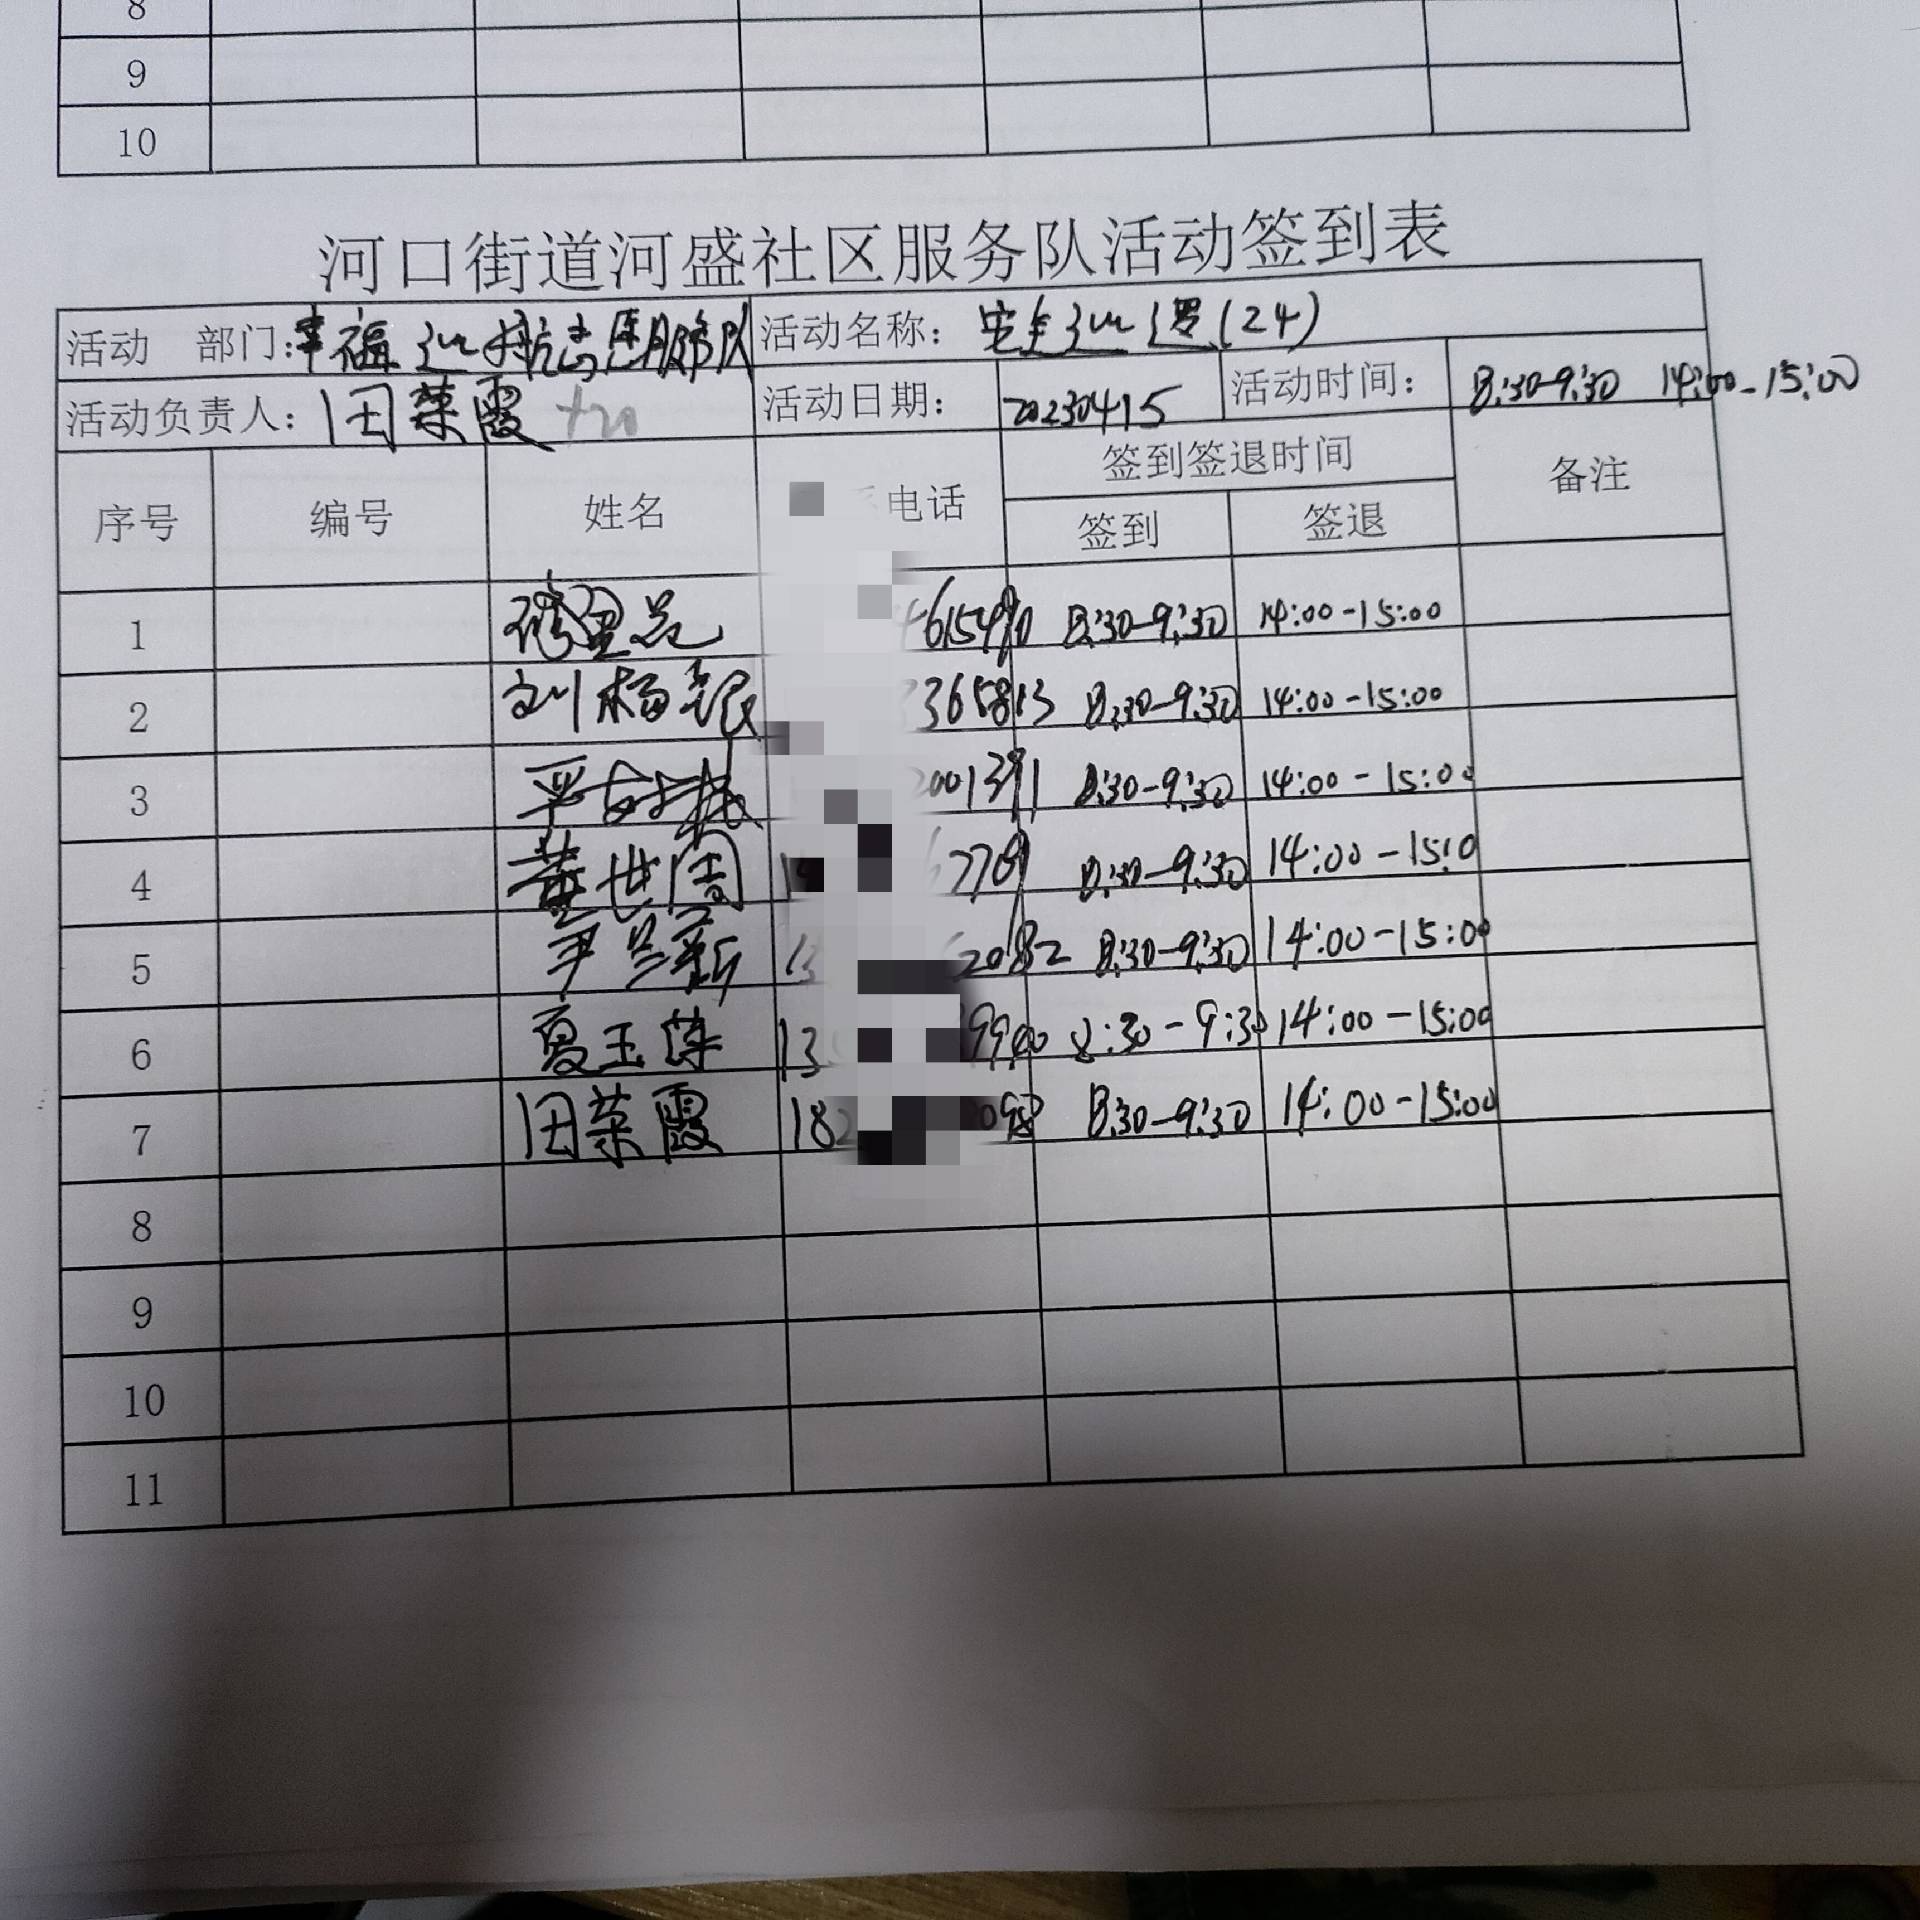 8
9
10
河口街道河盛社区服务队活动签到表
活动 部门: 幸福巡航志愿服务队 活动名称: 安全巡逻(24)
活动负责人: 田荣霞 活动日期: 20230415 活动时间: 8:30-9:30 14:00-15:00
序号 编号 姓名 电话 签到签退时间 备注
签到 签退
1 8:30-9:30 14:00-15:00
2 刘杨银 3365813 8:30-9:30 14:00-15:00
3 001391 8:30-9:30 14:00-15:00
4 黄世周 7709 8:30-9:30 14:00-15:0
5 13 2082 8:30-9:30 14:00-15:00
6 夏玉萍 13 8:30-9:30 14:00-15:00
7 田荣霞 182 098 8:30-9:30 14:00-15:00
8
9
10
11